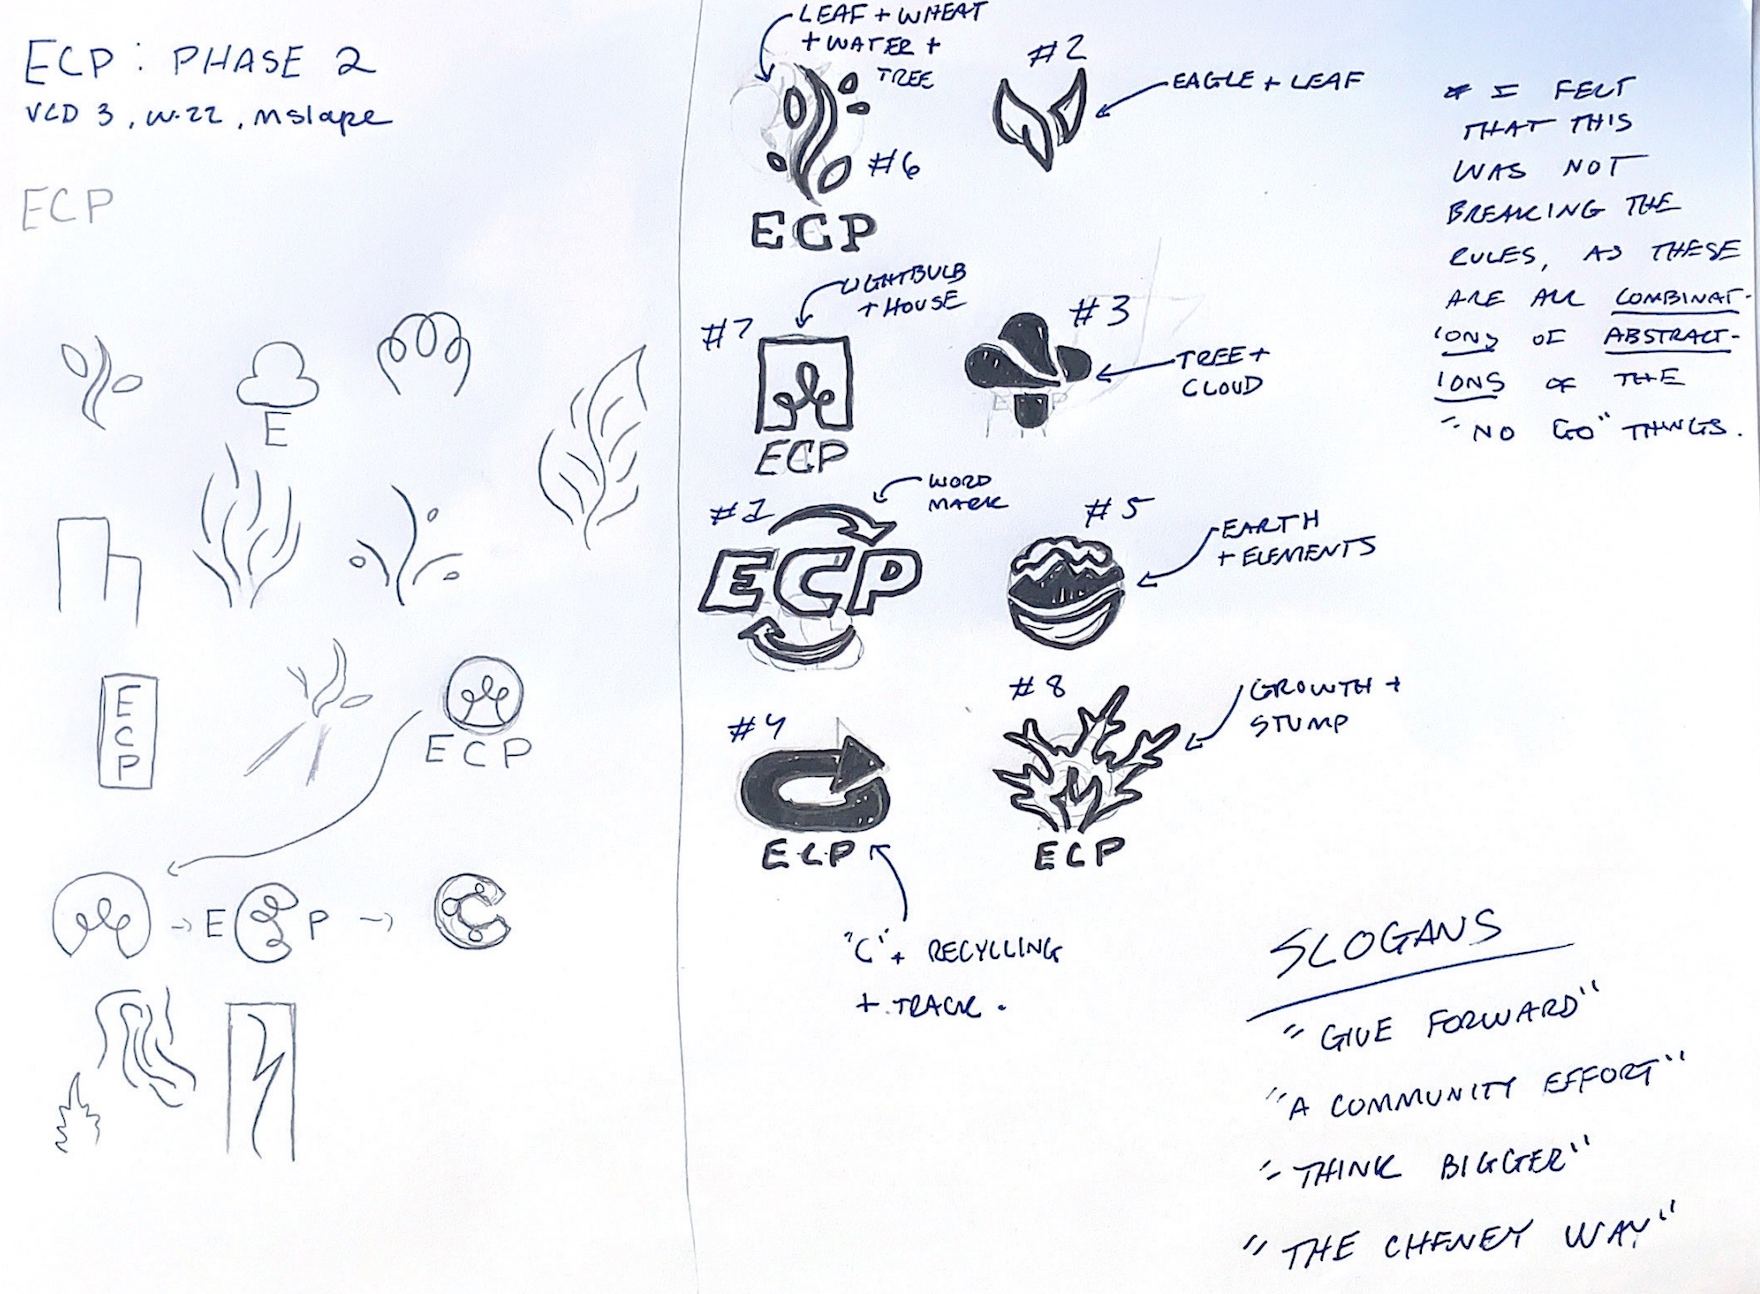 ECP: PHASE 2
VCD 3, W.22, mslape
ECP
E
E
C
P
ECP
E P
LEAF + WHEAT
+ WATER +
TREE
#6
ECP
#2
EAGLE + LEAF
LIGHTBULB
+ HOUSE
#7
ECP
#3
TREE +
CLOUD
#1
WORD
MARK
ECP
#5
EARTH
+ ELEMENTS
#4
ECP
"C" + RECYCLING
+ TRACK.
#8
GROWTH +
STUMP
ECP
* I FELT
THAT THIS
WAS NOT
BREAKING THE
RULES, AS THESE
ARE ALL COMBINAT-
IONS OF ABSTRACT-
IONS OF THE
"NO GO" THINGS.
SLOGANS
"GIVE FORWARD"
"A COMMUNITY EFFORT"
"THINK BIGGER"
"THE CHENEY WAY"